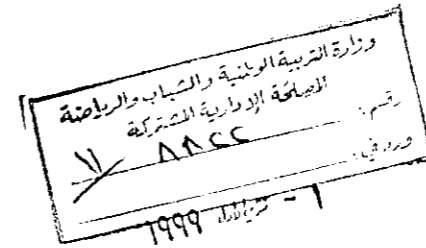 وزارة التربية الوطنية والشباب والرياضة
المصلحة الإدارية المشتركة
رقم: ٨٨٢٢ / ١١
ورد في:
١ - تشرين الأول 1999